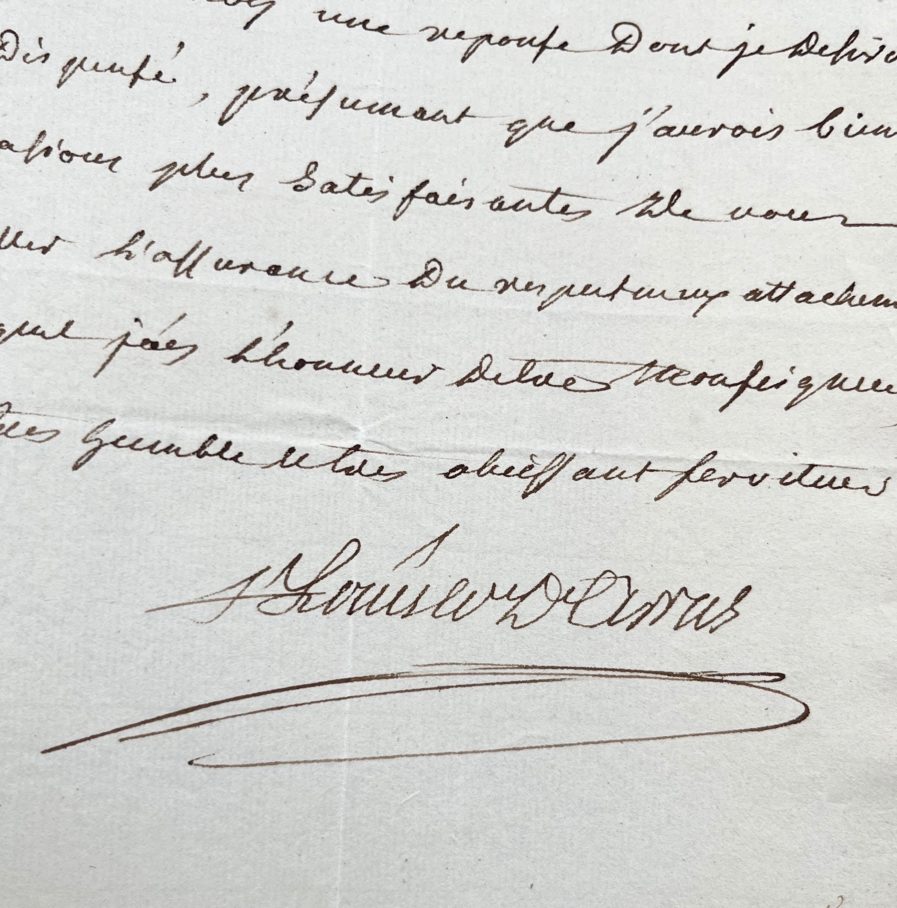 une reponse Dont je Desiro
Dispensé, présumant que j'aurois bien
asions plus Satisfaisantes De vous
ller L'assurance Du respectueux attachem
quel j'ais L'honneur Detre Monseigneu
tres humble et tres obeissant serviteur
+ Louis ev. D'Arras